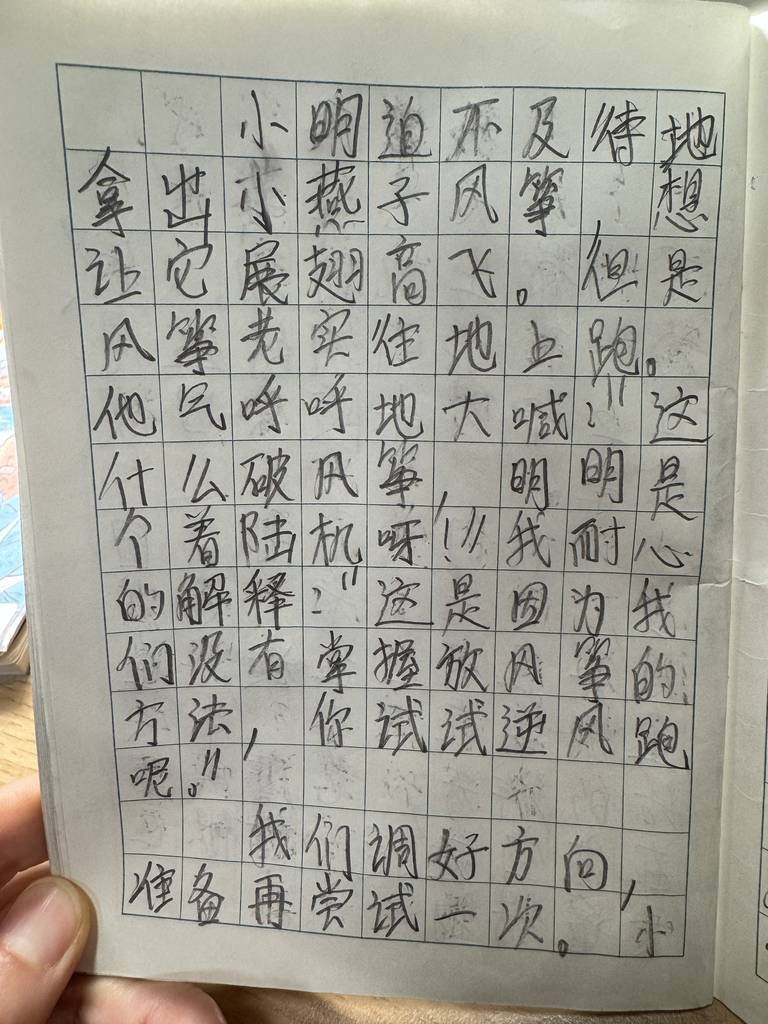 小明迫不及待地
拿出小燕子风筝,想
让它展翅高飞。但是
风筝老实往地上跑。
他气呼呼地大喊:"这
什么破风筝,明明是
个着陆机呀!"我耐心
的解释:"这是因为我
们没有掌握放风筝的
方法,你试试逆风跑
呢。"
我们调好方向,
准备再尝试一次。小